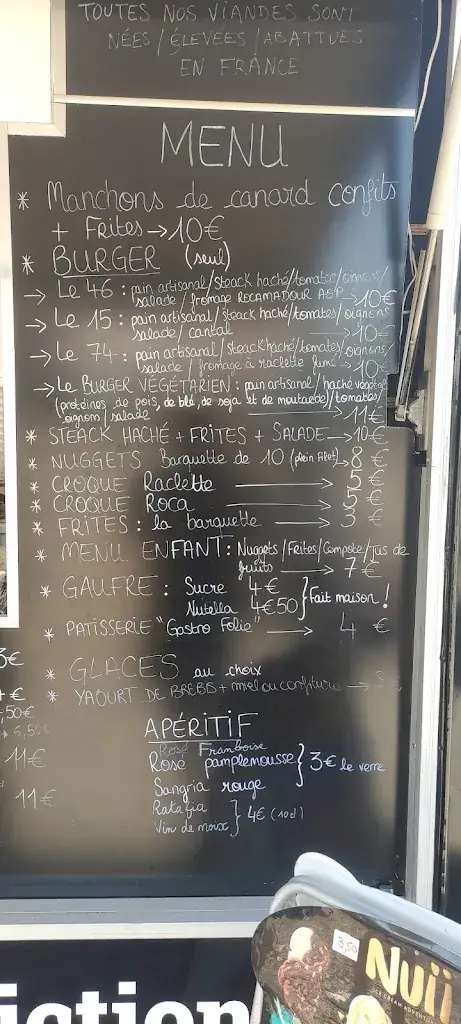 TOUTES NOS VIANDES SONT
NÉES / ÉLEVÉES / ABATTUES
EN FRANCE
MENU
* Manchons de canard confits
+ Frites → 10€
* BURGER (seul)
→ Le 46 : pain artisanal/steack haché/tomates/oignons/
salade / fromage ROCAMADOUR AOP → 10€
→ Le 15 : pain artisanal/steack haché/tomates/oignons
salade/ cantal → 10€
→ Le 74 : pain artisanal/steack haché/tomates/oignons/
salade / fromage à raclette fumé → 10€
→ Le BURGER VÉGÉTARIEN : pain artisanal/haché végétal
(protéines de pois, de blé, de soja et de moutarde)/tomates/
oignon/salade → 11€
* STEACK HACHÉ + FRITES + SALADE → 10€
* NUGGETS Barquette de 10 (plein filet) → 8 €
* CROQUE Raclette → 5 €
* CROQUE Roca → 5 €
* FRITES : la barquette → 3 €
* MENU ENFANT : Nuggets/Frites/Compote/Jus de
fruits → 7€
* GAUFRE : Sucre 4€
Nutella 4€50 } Fait maison !
* PATISSERIE "Gastro Folie" → 4 €
* GLACES au choix
* YAOURT DE BREBIS + miel ou confiture →
3€
€
,50€
5,50€
11€
11€
APÉRITIF
Rosé Framboise
Rosé pamplemousse } 3€ le verre
Sangria rouge
Ratafia
Vin de noix } 4€ (10cl)
3,50
Nuii
ICE CREAM ADVENTURE
iction